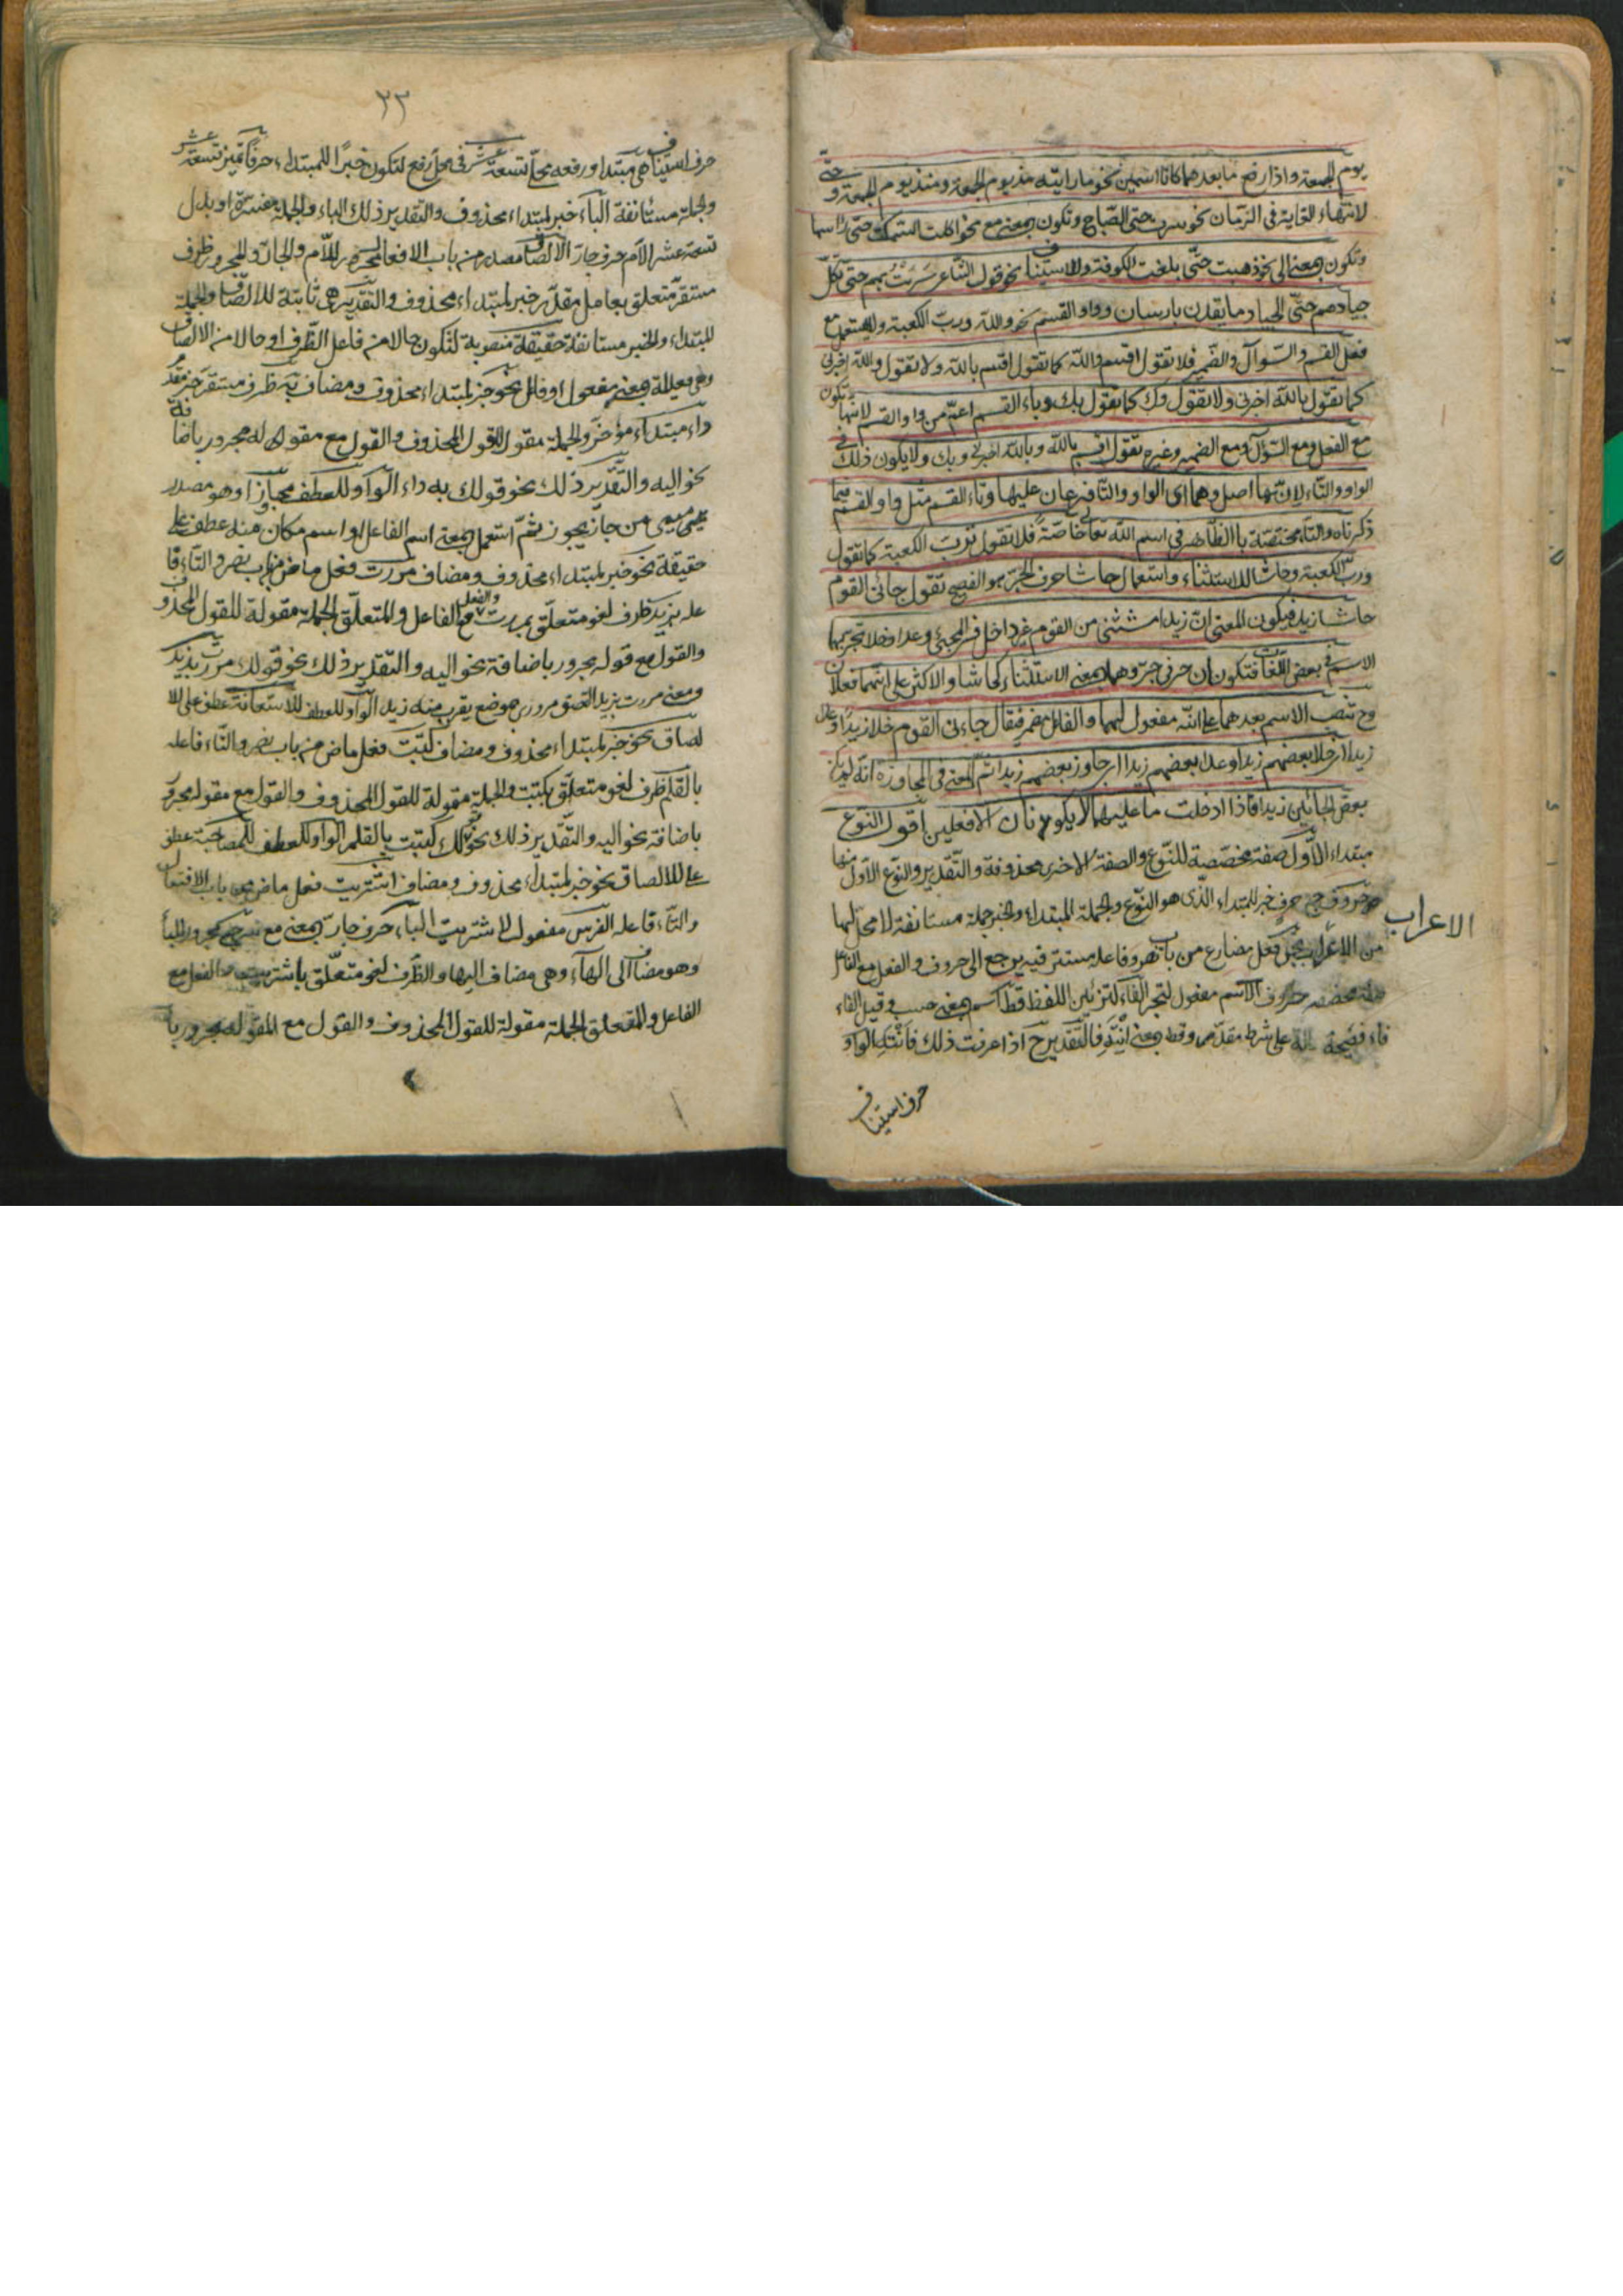 يوم الجمعة واذا رفع ما بعدهما كانا اسمين نحو ما رايته مذ يوم الجمعة ومنذ يوم الجمعة و حتّى
لانتهاء الغاية فى الزمان نحو سرت حتى الصّباح وتكون بمعنى مع نحو اكلت السّمكة حتى راسها
وتكون بمعنى الى نحو ذهبت حتّى بلغت الكوفة وللاستيناف نحو قول الشاعر سَرَيْتُ بهم حتى تكلّ
جيادهم حتّى الجياد ما يقدن بارسان وواو القسم نحو والله وربّ الكعبة ولا يستعمل مع
فعل القسم والسّوال والضّمير فلا تقول اقسم والله كما تقول اقسم بالله ولا تقول والله اخبرنى
كما تقول بالله اخبرنى ولا تقول وك كما تقول بك وباء القسم اعمّ من واو القسم لانّها تكون
مع الفعل ومع السّوال ومع الضمير وغيره تقول اقسم بالله وبالله اخبرنى وبك ولا يكون ذلك فى
الواو والتّاء لانّها اصل وهما اى الواو والتّاء فرعان عليها وتاء القسم مثل واو القسم فيما
ذكرناه والتّاء مختصّة بالظّاهر فى اسم الله تعالى خاصّةً فلا تقول تربّ الكعبة كما تقول
وربّ الكعبة وحاشا للاستثناء واستعمال حاشا حرف الجرّ هو الفصيح تقول جائنى القوم
حاشا زيد فيكون المعنى انّ زيدا مستثنى من القوم غير داخل فى المجيئ وعدا وخلا تجرّ بهما
الاسم فى بعض اللّغات فتكونان حرفى جرّ وهما بمعنى الاستثناء كحاشا والاكثر على انّهما فعلان
وح تنصب الاسم بعدهما على انّه مفعول لهما والفاعل مضمر فيقال جاءنى القوم خلا زيدًا وعدا
زيدا اى خلا بعضهم زيدا وعدا بعضهم زيدا اى جاوز بعضهم زيدا ثمّ المعنى فى المجاوزة انّه لم يكن
بعض الجائين زيدا فاذا ادخلت ما عليهما لا يكونان الا فعلين اقول النوع
مبتداء الاوّل صفة مخصّصة للنّوع والصفة الاخرى محذوفة والتّقدير والنّوع الاوّل منها
حروف خبر للمبتداء الّذى هو النّوع والجملة المبتداء والخبر جملة مستانفة لا محلّ لها
الاعراب
من الاعراب تجرّ فعل مضارع من باب نصر وفاعله مستتر فيه يرجع الى حروف والفعل مع الفاعل
حروف الاسم مفعول لتجرّ الفاء لتزيين اللفظ قط اسم بمعنى حسب وقيل الفاء
فاء فصيحة على شرط مقدّم وقط بمعنى انْتَهِ فالتّقدير ح اذا عرفت ذلك فانْتَهِ الواو
حرف استيناف
٢٣
حرف استيناف هى مبتدا ورفعه محلّا تسعة عشر فى محل رفع لتكون خبرًا للمبتداء حرفًا تميز تسعة عشر
والجملة مستانفة الباء خبر لمبتداء محذوف والتقدير ذلك الباء والجملة مفسّرة او بدل
تسعة عشر اللام حرف جارّ الالصاق مصدر من باب الافعال مجرور باللّام والجارّ والمجرور ظرف
مستقرّ متعلق بعامل مقدّر خبر لمبتداء محذوف والتّقدير هى ثابتة للالصاق والجملة
المبتداء والخبر مستانفة حقيقة منصوبة لتكون حالا من فاعل الظّرف او حالا من الالصاق
وهى فعيلة بمعنى مفعول او فاعل نحو خبر لمبتداء محذوف ومضاف به ظرف مستقر خبر مقدّم
داء مبتداء مؤخّر والجملة مقول للقول المحذوف والقول مع مقوله له مجرور باضافة
نحو اليه والتّقدير ذلك نحو قولك به داء الواو للعطف مجازا وهو مصدر
ميمى من جاز يجوز ثمّ استعمل بمعنى اسم الفاعل او اسم مكان منه عطف على
حقيقة نحو خبر لمبتداء محذوف ومضاف مررت فعل ماض من باب نصر والتّاء فا
عله بزيد ظرف لغو متعلّق بمررت والفعل مع الفاعل والمتعلّق الجملة مقولة للقول المحذوف
والقول مع قوله مجرور باضافة نحو اليه والتّقدير ذلك نحو قولك مررت بزيد
ومعنى مررت بزيد التصق مرورى بموضع يقرب منه زيد الواو للعطف للاستعانة عطف على للا
لصاق نحو خبر لمبتداء محذوف ومضاف كتبت فعل ماض من باب نصر والتّاء فاعله
بالقلم ظرف لغو متعلّق بكتبت والجملة مقولة للقول المحذوف والقول مع مقوله مجرور
باضافة نحو اليه والتّقدير ذلك نحو قولك كتبت بالقلم الواو للعطف للمصاحبة عطف
على للالصاق نحو خبر لمبتداء محذوف ومضاف اشتريت فعل ماض من باب الافتعال
والتّاء فاعله الفرس مفعول لاشتريت الباء حرف جارّ بمعنى مع سرجه مجرور بالباء
وهو مضاف الى الهاء وهى مضاف اليها والظّرف لغو متعلّق باشتريت والفعل مع
الفاعل والمتعلق الجملة مقولة للقول المحذوف والقول مع المقولة مجرور با